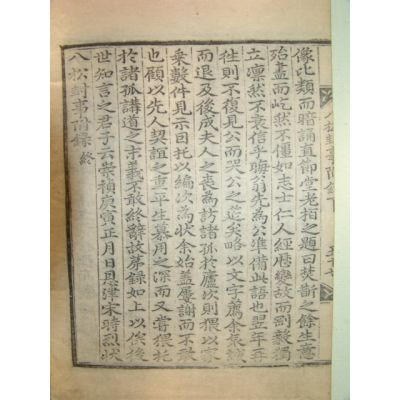 像比類而暗誦直節堂老栢之題曰焚斮之餘生意
殆盡而屹然不僵如志士仁人經歷變故而剛毅獨
立凜然不衰信乎晦翁先為公準備此語也翌年再
徃則不復見公而哭公之筵矣略以文字薦余氣誠
而退及後成夫人之喪為訪諸孤於廬次則猥以家
乘數件見示因托以編次為狀余始蓋屢謝而不敢
也顧以先人契誼之重平生慕用之深而又嘗猥托
於諸孤講道之末義不敢終辭故第錄如上以俟後
世知言之君子云崇禎庚寅正月日恩津宋時烈狀
八松封事附錄 終